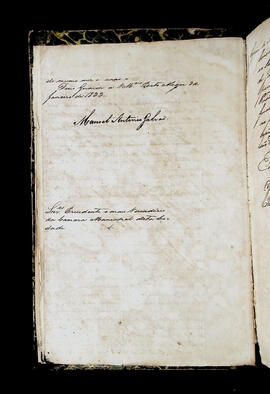 do mesmo
Deos Guarde a V. S.as Porto Alegre 2 de
Janeiro de 1833
Manoel Antonio Galvão
Snr.es Presidente e mais Vereadores
da Camara Municipal desta Ci-
dade